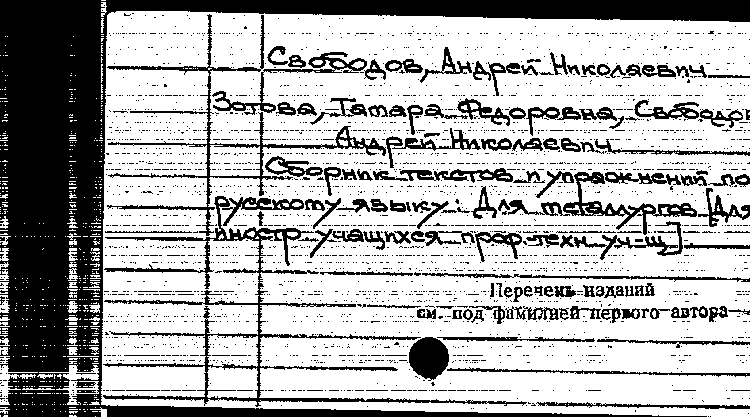 Свободов, Андрей Николаевич
Зотова, Тамара Федоровна, Свободов
Андрей Николаевич
Сборник текстов и упражнений по
русскому языку: Для металлургов [Для
иностр. учащихся проф.-техн. уч-щ]
Перечень изданий
см. под фамилией первого автора